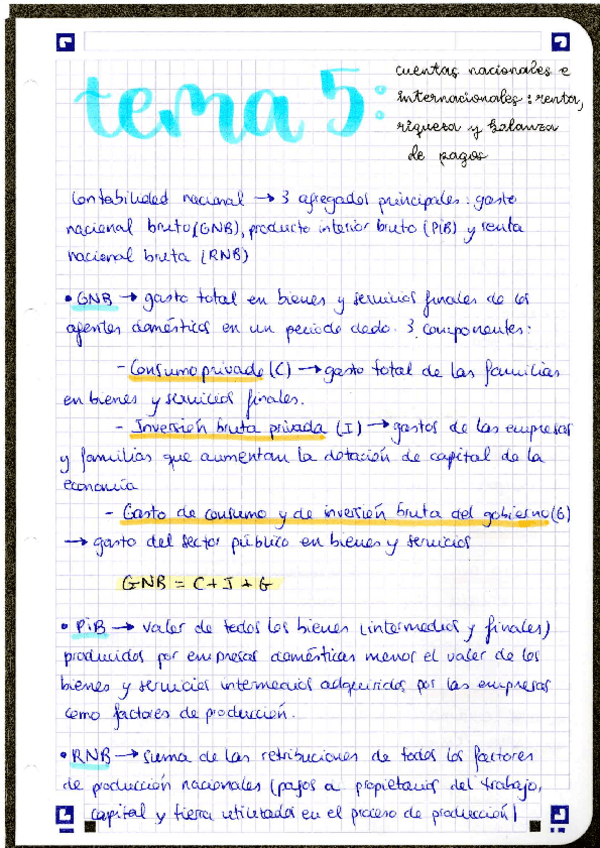 tema 5:
cuentas nacionales e
internacionales: renta,
riqueza y balanza
de pagos
Contabilidad nacional → 3 agregados principales: gasto
nacional bruto (GNB), producto interior bruto (PiB) y renta
nacional bruta (RNB)
• GNB → gasto total en bienes y servicios finales de los
agentes domésticos en un periodo dado. 3 componentes:
- Consumo privado (C) → gasto total de las familias
en bienes y servicios finales.
- Inversión bruta privada (I) → gastos de las empresas
y familias que aumentan la dotación de capital de la
economía
- Gasto de consumo y de inversión bruta del gobierno (G)
→ gasto del sector público en bienes y servicios
GNB = C + I + G
• PiB → valor de todos los bienes (intermedios y finales)
producidos por empresas domésticas menos el valor de los
bienes y servicios intermedios adquiridos por las empresas
como factores de producción.
• RNB → suma de las retribuciones de todos los factores
de producción nacionales (pagos a propietarios del trabajo,
capital y tierra utilizados en el proceso de producción)